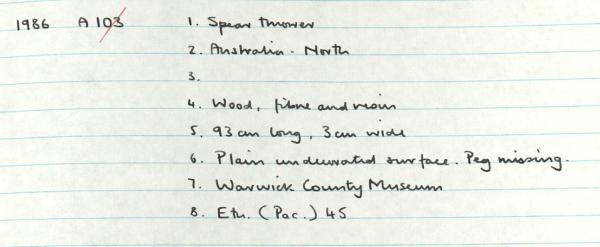 1986 A 103 1. Spear thrower
2. Australia - North
3.
4. Wood, fibre and resin
5. 93 cm long, 3 cm wide
6. Plain undecorated surface. Peg missing.
7. Warwick County Museum
8. Eth. (Pac.) 45